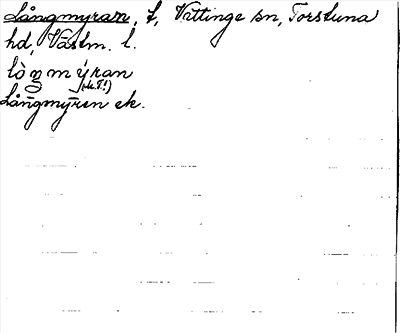 Långmyran, t, Vittinge sn, Torstuna
hd, Västm. l.
lòŋmýran
(sk.!)
Långmyren ek.